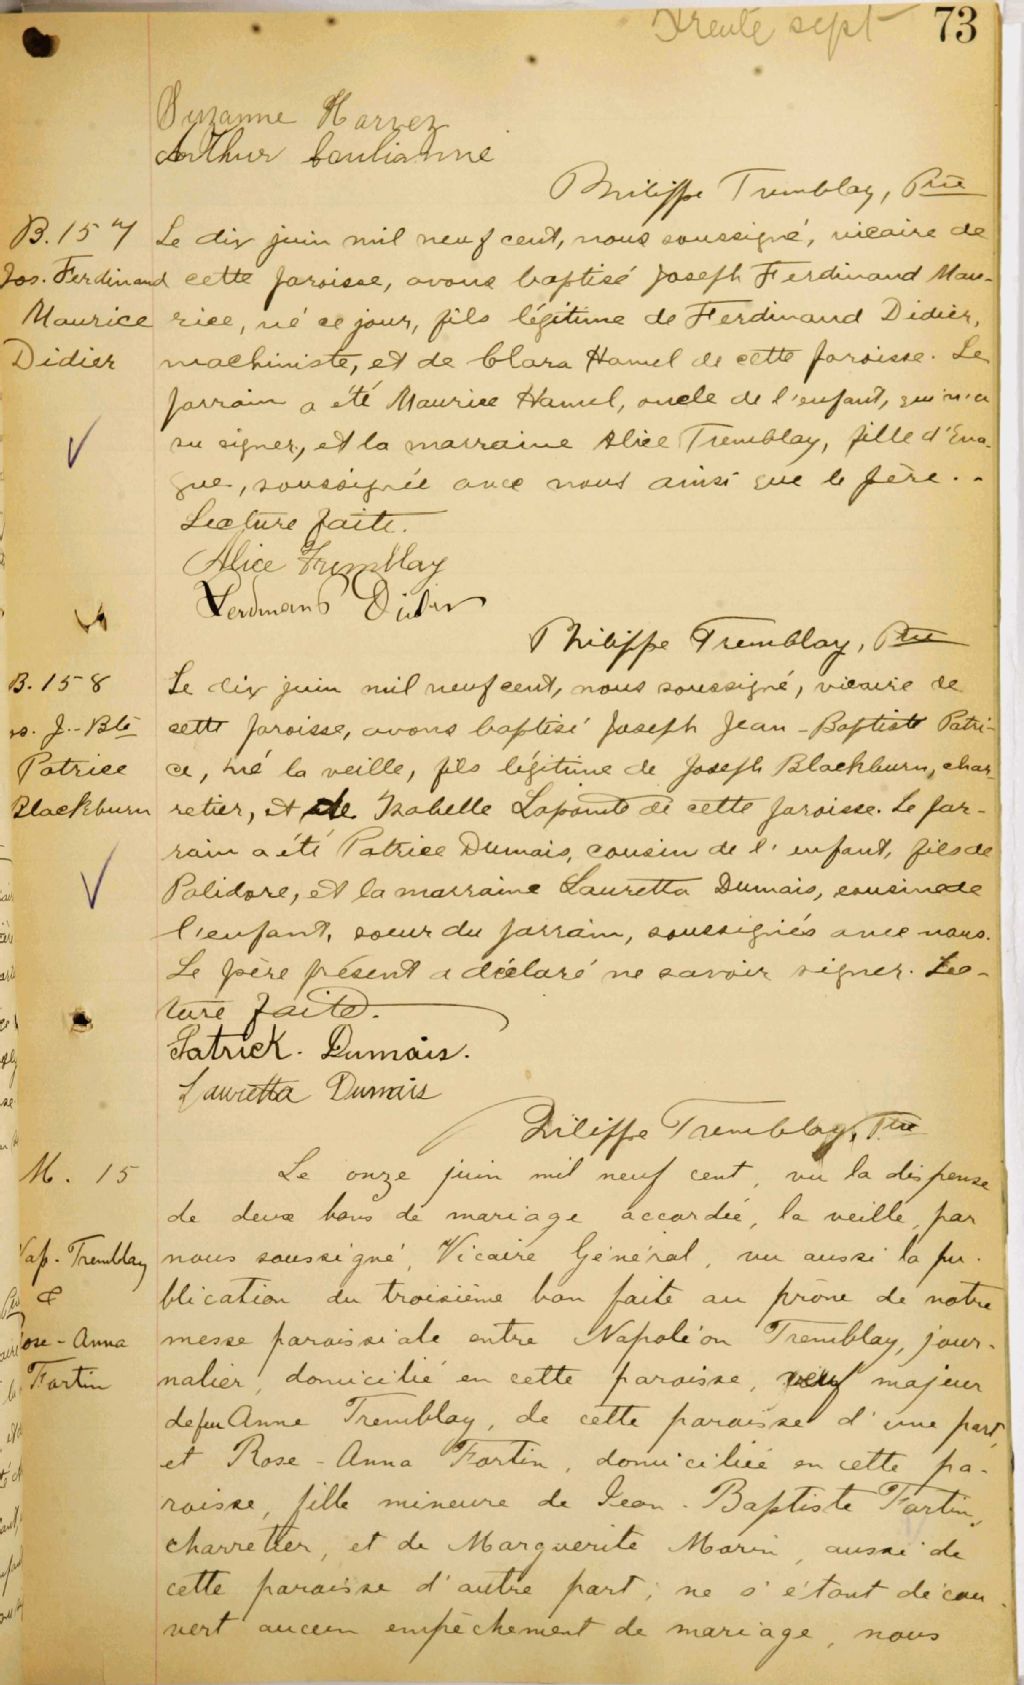 Trente sept 73
Suzanne Harvez
Arthur Coulianne
Philippe Tremblay, Ptre
B. 157 Le dix juin mil neuf cent, nous soussigné, vicaire de
Jos. Ferdinand cette paroisse, avons baptisé Joseph Ferdinand Mau-
Maurice rice, né ce jour, fils légitime de Ferdinand Didier,
Didier machiniste, et de Clara Hamel de cette paroisse. Le
parrain a été Maurice Hamel, oncle de l'enfant, qui n'a
su signer, et la marraine Alice Tremblay, fille d'Eva-
gue, soussignée avec nous ainsi que le père. -
Lecture faite.
Alice Tremblay
Ferdinand Didier
Philippe Tremblay, Ptre
B. 158 Le dix juin mil neuf cent, nous soussigné, vicaire de
os. J.-Bte cette paroisse, avons baptisé Joseph Jean-Baptiste Patri-
Patrice ce, né la veille, fils légitime de Joseph Blackburn, char-
Blackburn retier, et de Isabelle Lapointe de cette paroisse. Le par-
rain a été Patrice Dumais, cousin de l'enfant, fils de
Polidore, et la marraine Lauretta Dumais, cousine de
l'enfant, soeur du parrain, soussignés avec nous.
Le père présent a déclaré ne savoir signer. Lec-
ture faite.
Patrick. Dumais.
Lauretta Dumais
Philippe Tremblay, Ptre
M. 15 Le onze juin mil neuf cent, vu la dispense
de deux bans de mariage accordée, la veille, par
Nap. Tremblay nous soussigné, Vicaire Général, vu aussi la pu-
& blication du troisième ban faite au prône de notre
ose-Anna messe paroissiale entre Napoléon Tremblay, jour-
Fortin nalier, domicilié en cette paroisse, veuf majeur
de feu Anne Tremblay, de cette paroisse d'une part,
et Rose-Anna Fortin, domiciliée en cette pa-
roisse, fille mineure de Jean-Baptiste Fortin,
charretier, et de Marguerite Morin, aussi de
cette paroisse d'autre part; ne s'étant décou-
vert aucun empêchement de mariage, nous